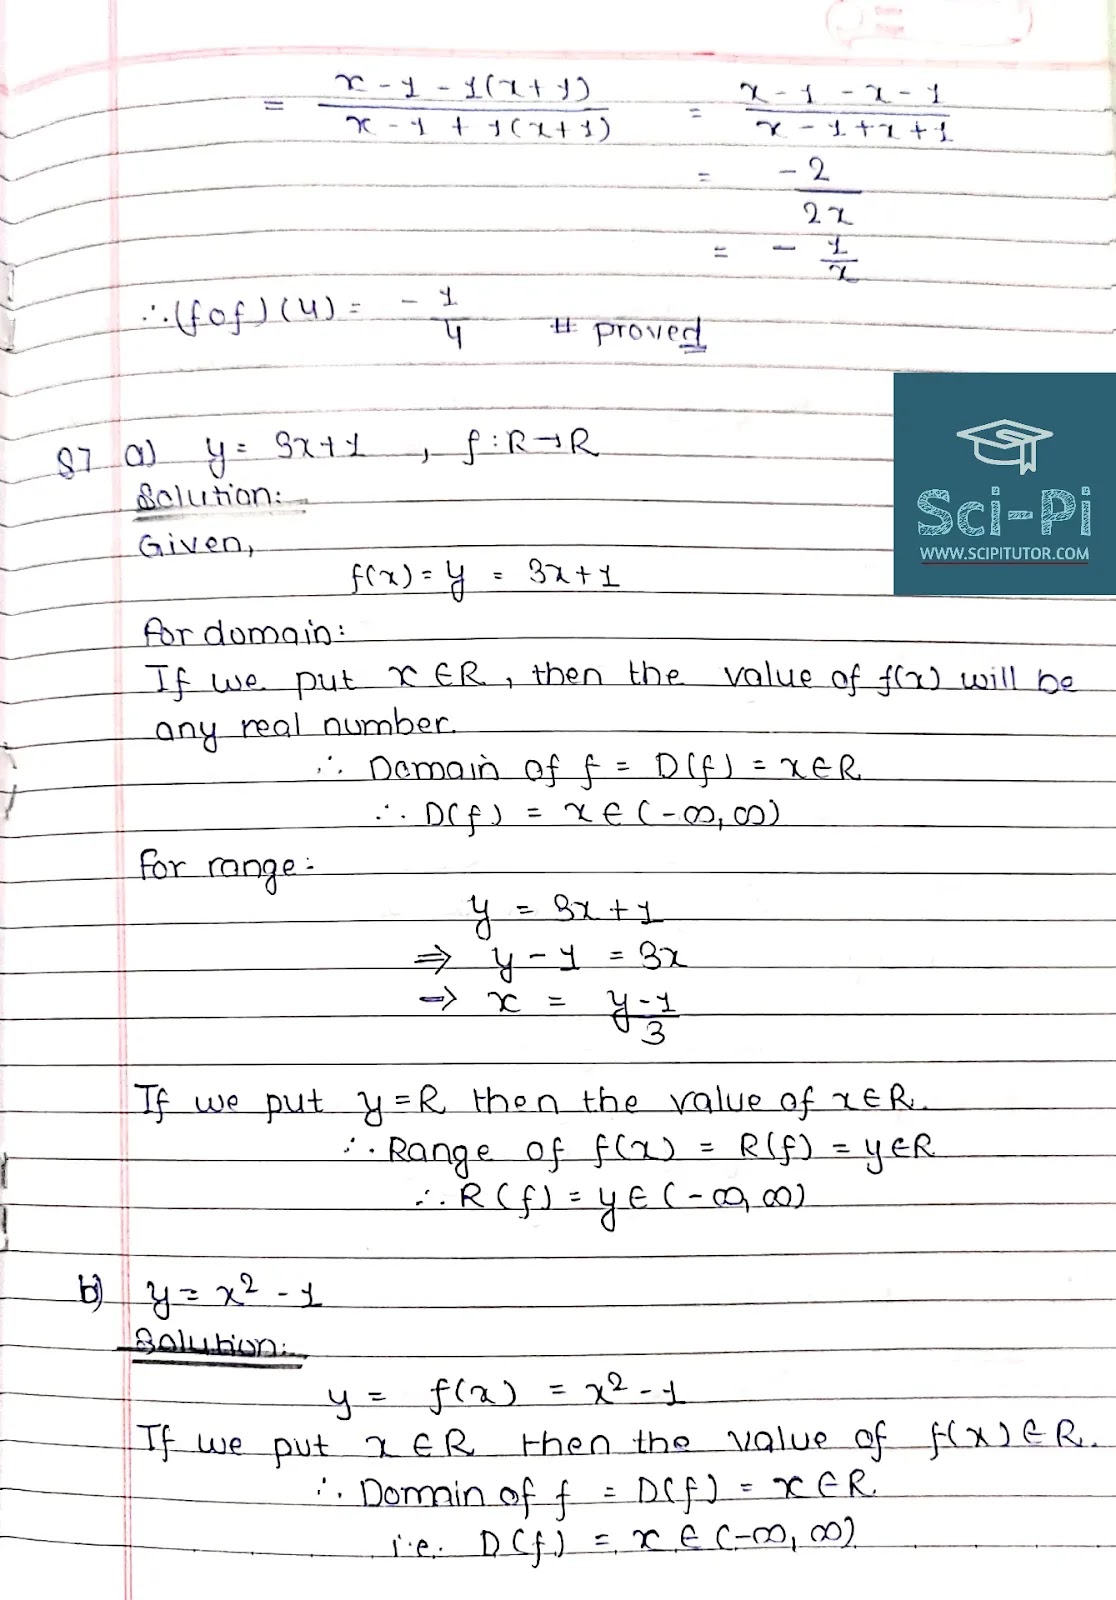 = x - 1 - 1(x + 1) / x - 1 + 1(x + 1) = x - 1 - x - 1 / x - 1 + x + 1
= - 2 / 2x
= - 1/x
∴ (fof)(4) = - 1/4 # proved
87 a) y = 3x+1 , f : R→R
Solution:
Given,
f(x) = y = 3x+1
For domain:
If we put x ∈R, then the value of f(x) will be
any real number.
∴ Domain of f = D(f) = x∈R
∴ D(f) = x ∈ (-∞, ∞)
For range:
y = 3x + 1
⇒ y - 1 = 3x
⇒ x = y-1/3
If we put y = R then the value of x∈R.
∴ Range of f(x) = R(f) = y∈R
∴ R(f) = y∈ (-∞, ∞)
b) y = x² - 1
Solution:
y = f(x) = x² - 1
If we put x ∈R then the value of f(x)∈R.
∴ Domain of f = D(f) = x ∈R
i.e. D(f) = x ∈ (-∞, ∞)
Sci-Pi
WWW.SCIPITUTOR.COM